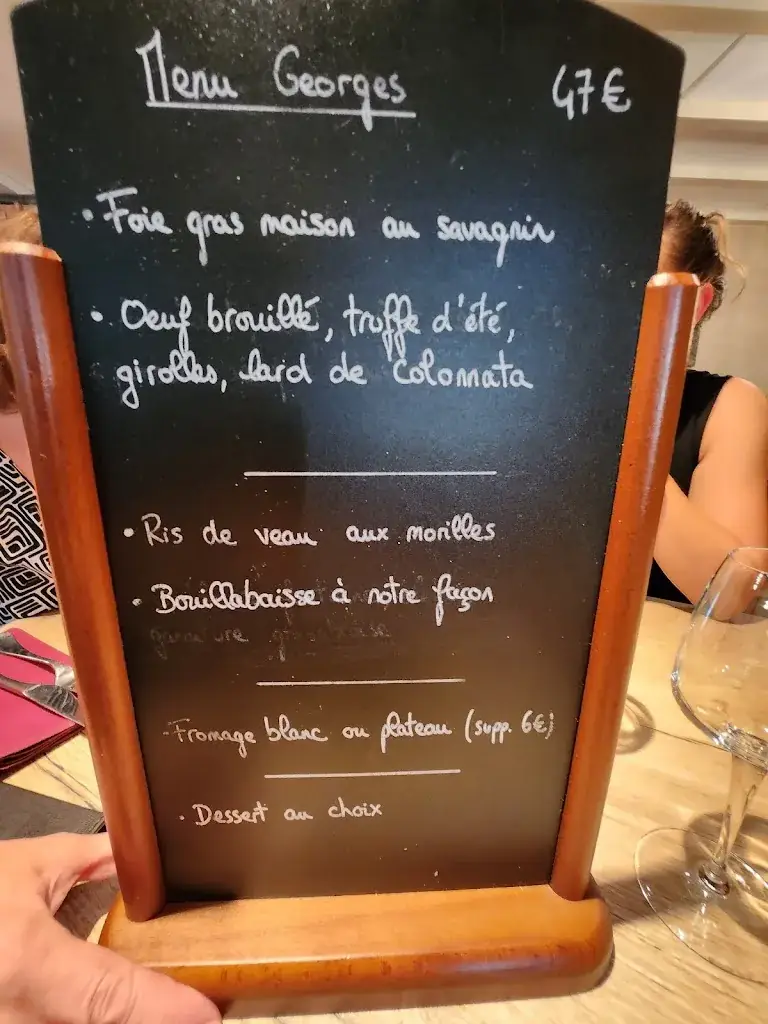 Menu Georges 47€
• Foie gras maison au savagnin
• Oeuf brouillé, truffe d'été,
girolles, lard de Colonnata
• Ris de veau aux morilles
• Bouillabaisse à notre façon
- Fromage blanc ou plateau (supp. 6€)
• Dessert au choix